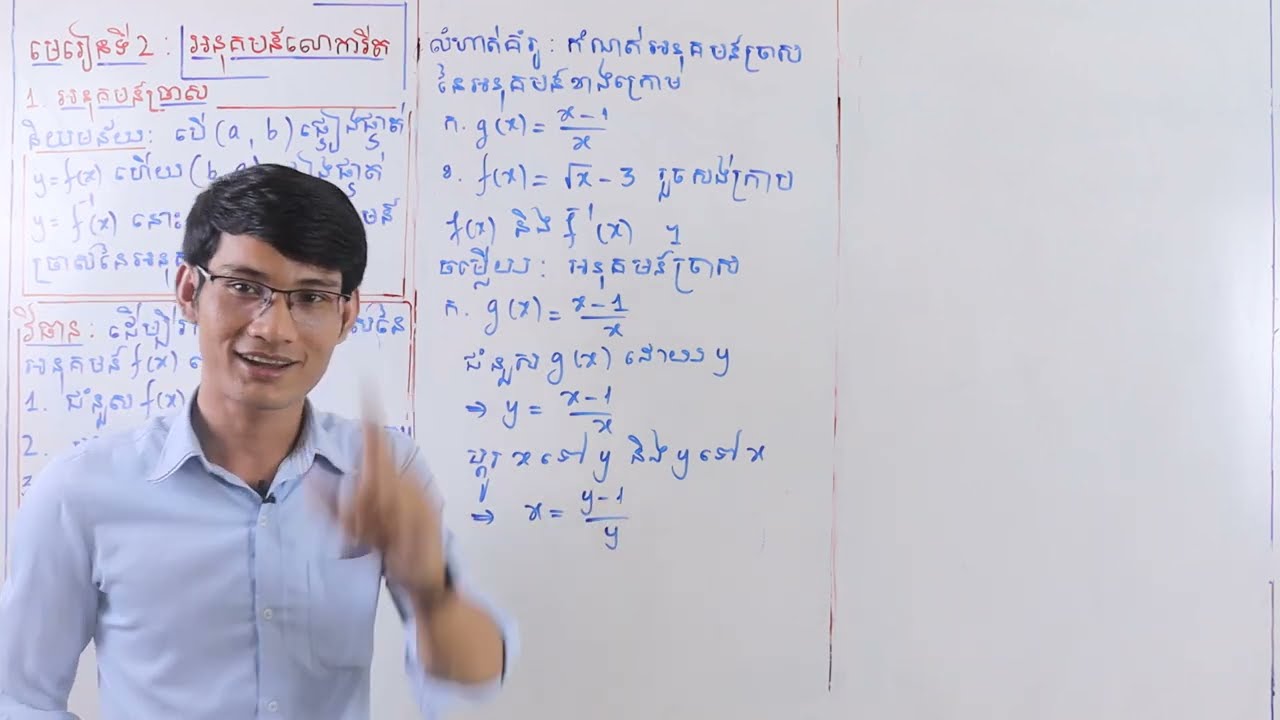 មេរៀនទី2 : អនុគមន៍លោការីត
1. អនុគមន៍ច្រាស
និយមន័យ: បើ (a, b) ផ្ទៀងផ្ទាត់
y = f(x) ហើយ (b
y = f⁻¹(x) នោះ
ច្រាសនៃអនុគ
វិធាន : ដើម្បីរក
អនុគមន៍ f(x)
1. ជំនួស f(x)
2.
លំហាត់គំរូ : កំណត់អនុគមន៍ច្រាស
នៃអនុគមន៍ខាងក្រោម
ក. g(x) = (x-1)/x
ខ. f(x) = √x - 3 រួចសង់ក្រាប
f(x) និង f⁻¹(x) ។
ចម្លើយ : អនុគមន៍ច្រាស
ក. g(x) = (x-1)/x
ជំនួស g(x) ដោយ y
⇒ y = (x-1)/x
ប្តូរ x ទៅ y និង y ទៅ x
⇒ x = (y-1)/y